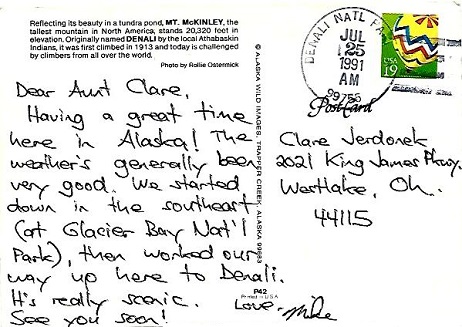 Reflecting its beauty in a tundra pond, MT. McKINLEY, the
tallest mountain in North America, stands 20,320 feet in
elevation. Originally named DENALI by the local Athabaskin
Indians, it was first climbed in 1913 and today is challenged
by climbers from all over the world.
Photo by Rollie Ostermick
Dear Aunt Clare,
Having a great time
here in Alaska! The
weather's generally been
very good. We started
down in the southeast
(at Glacier Bay Nat'l
Park), then worked our
way up here to Denali.
It's really scenic.
See you soon!
Love, Mike
© ALASKA WILD IMAGES, TRAPPER CREEK, ALASKA 99683
P42
Printed in USA
DENALI NATL PARK
JUL
25
1991
AM
99755
USA
19
PostCard
Clare Jerdonek
2021 King James Pkwy.
Westlake, Oh.
44115